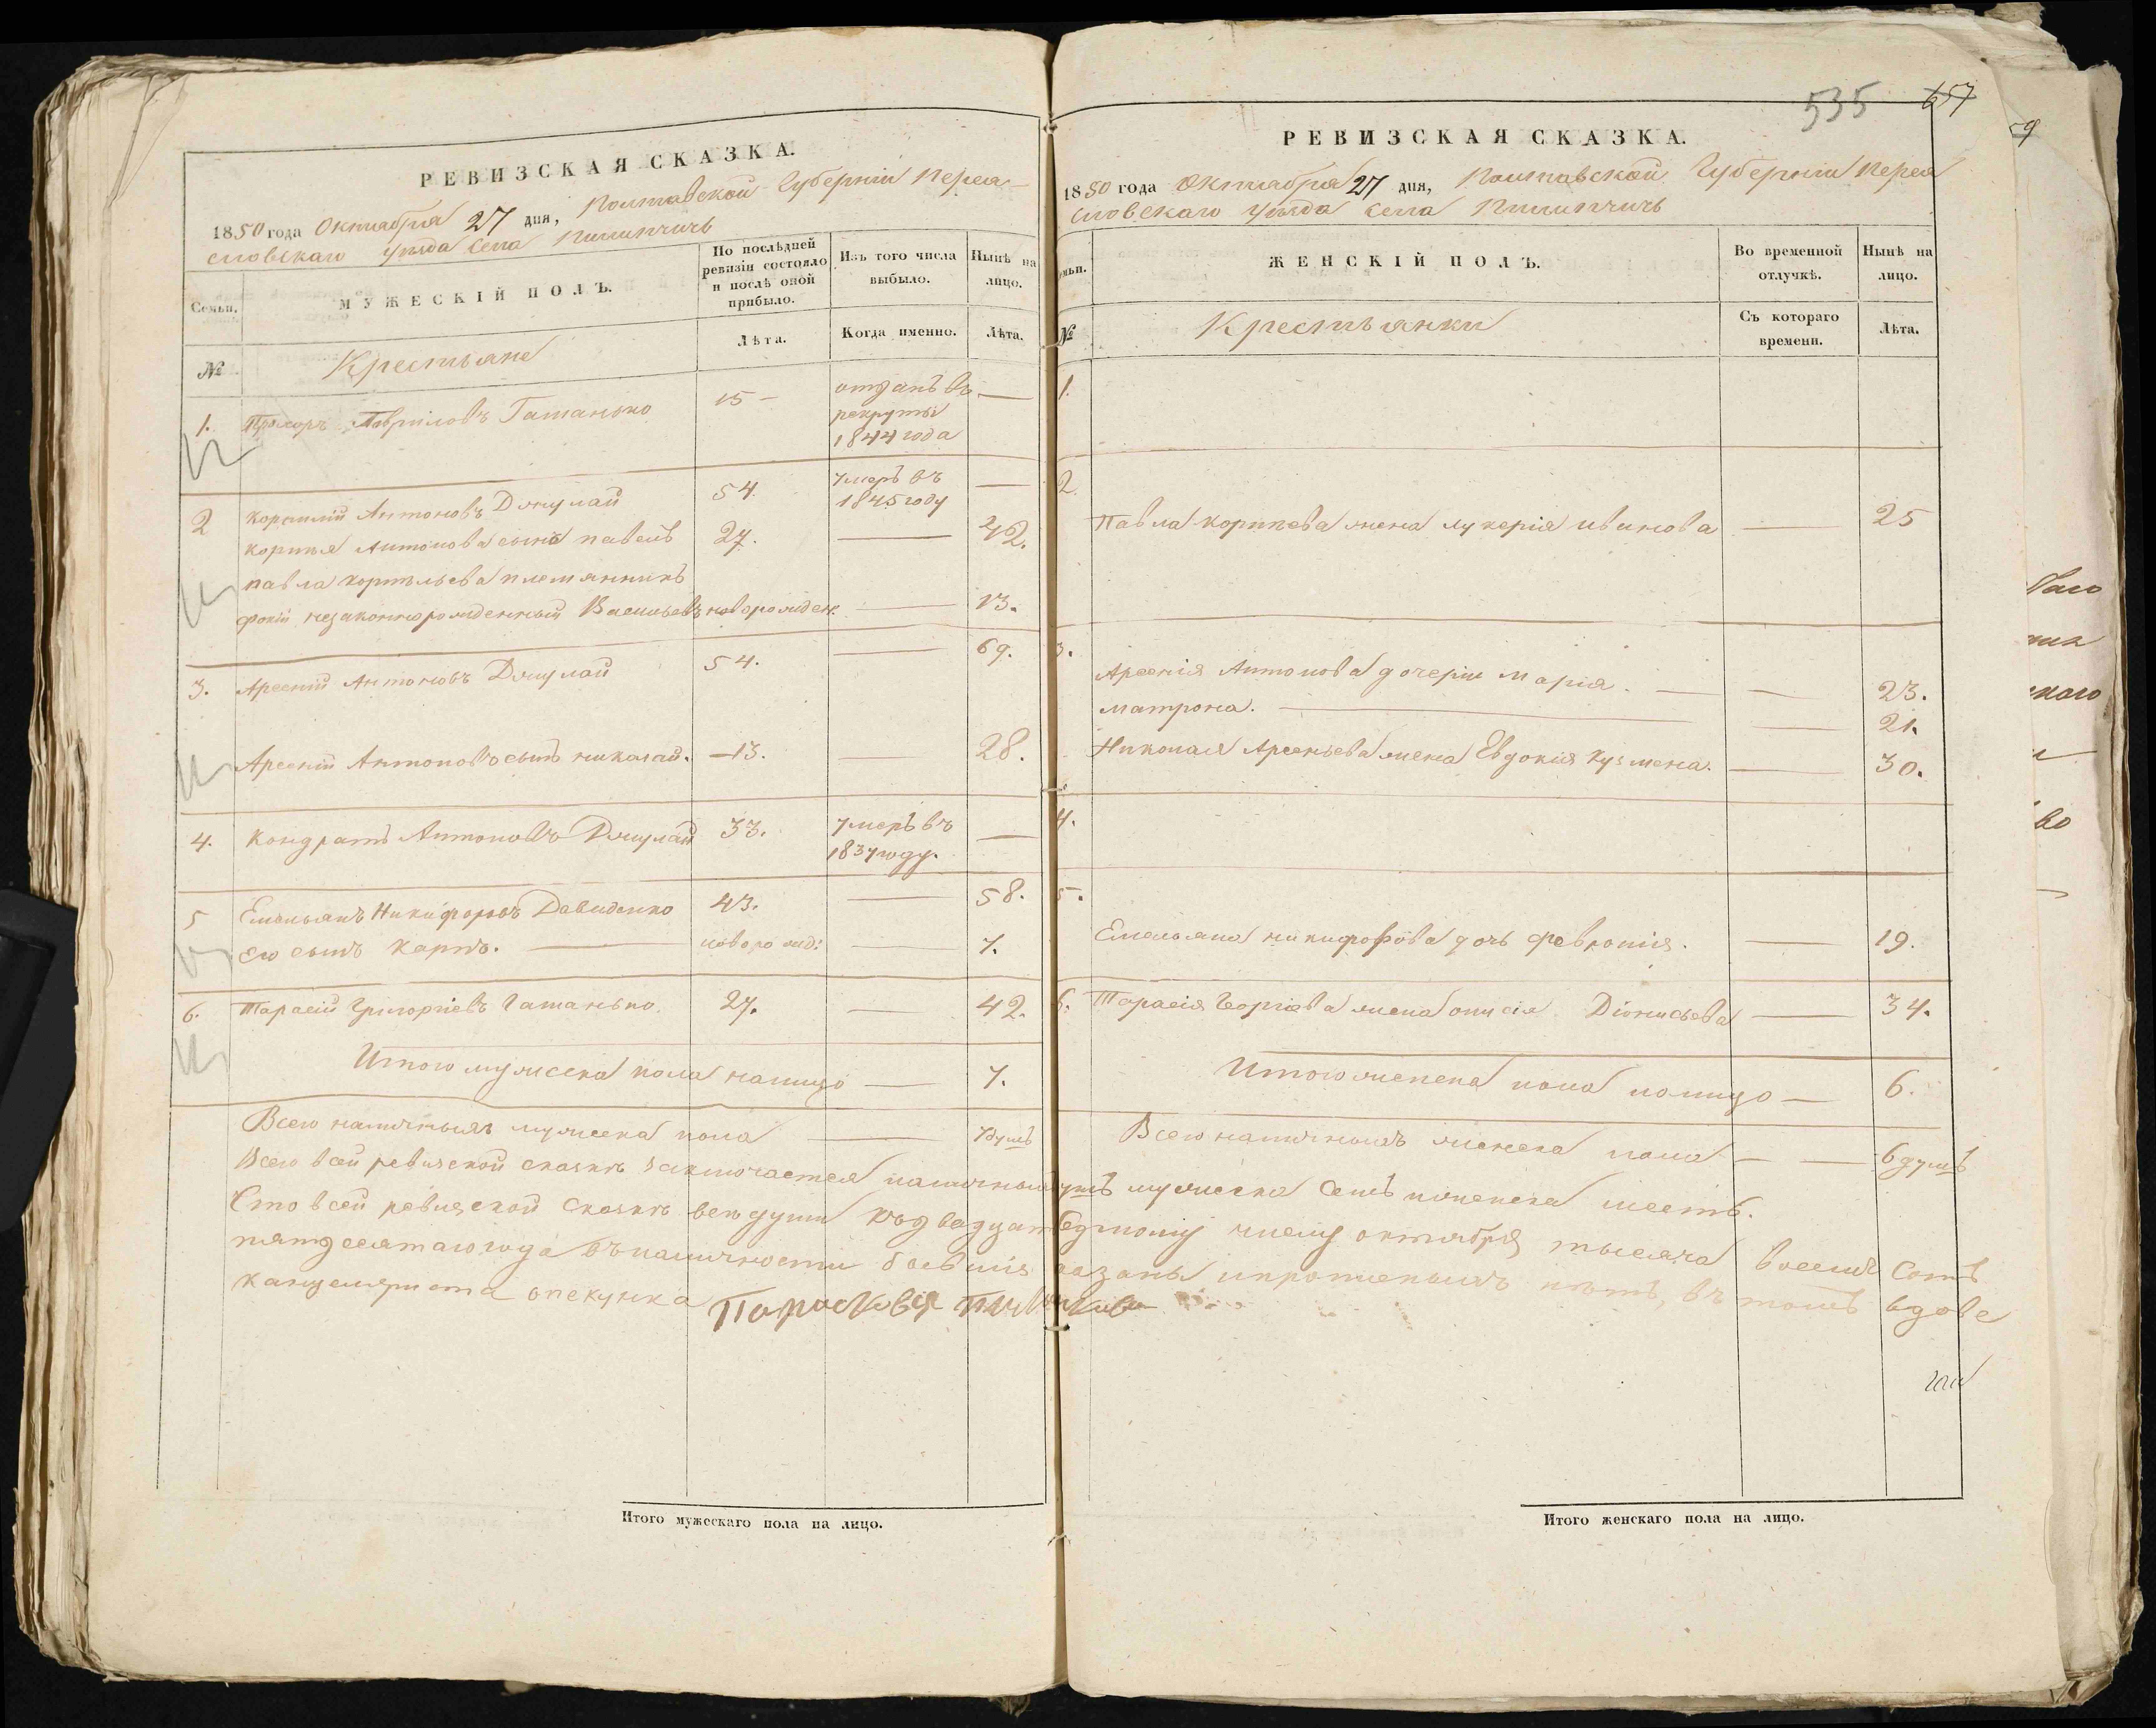 РЕВИЗСКАЯ СКАЗКА.
1850 года Октября 27 дня, Полтавской Губерніи Перея-
словскаго уѣзда села Пилипчичь
Семьи.
МУЖЕСКІЙ ПОЛЪ.
По послѣдней ревизіи состояло и послѣ оной прибыло.
Изъ того числа выбыло.
Нынѣ на лицо.
№
Крестьяне
Лѣта.
Когда именно.
Лѣта.
1. Прохоръ Гавриловъ Гатанько 15 — отданъ въ —
рекруты
1844 года
2 Корнилій Антоновъ Джулай 54. умеръ въ —
1845 году
Корнилія Антонова сынъ Павелъ 27. — 42.
Павла Корнильева племянникъ
Фокій незаконнорожденный Васильевъ новорожден. — 13.
3. Арсеній Антоновъ Джулай 54. — 69.
Арсенія Антонова сынъ Николай. — 13. — 28.
4. Кондратъ Антоновъ Джулай 33. умеръ въ —
1837 году.
5 Емельянъ Никифоровъ Давиденко 43. — 58.
его сынъ Карпъ. — новорожд: — 7.
6. Тарасій Григоріевъ Гатанько. 27. — 42.
Итого мужеска пола налицо — 7.
Всего наличныхъ мужеска пола — 7 душъ
535 657
РЕВИЗСКАЯ СКАЗКА.
1850 года Октября 27 дня, Полтавской Губерніи Перея
словскаго уѣзда села Пилипчичь
ЖЕНСКІЙ ПОЛЪ.
Во временной отлучкѣ.
Нынѣ на лицо.
№
Крестьянки
Съ котораго времени.
Лѣта.
1.
2.
Павла Корнѣева жена Лукерія Иванова — 25
3.
Арсенія Антонова дочери Марія. — — 23.
Матрона. — — 21.
Николая Арсеньева жена Евдокія Кузмена. — 30.
4.
5.
Емельяна Никифорова дочь Февронія. — 19.
6. Тарасія Георгіева жена Онисія Діонисьева — 34.
Итого женска пола налицо — 6.
Всего наличныхъ женска пола — — 6 душъ
Всего всей ревизской сказкѣ заключается наличныхъ душъ мужеска семь и женска шесть.
Что в сей ревизской сказкѣ всѣ души къ двадцать седьмому числу октября тысяча восемь сотъ
пятдесятаго года въ наличности бывшія показаны и пропущенныхъ нѣтъ, въ томъ вдова
канцеляриста опекунка Парасковія
Итого мужескаго пола на лицо.
Итого женскаго пола на лицо.